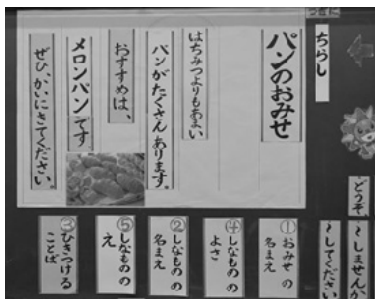 ちらし
パンのおみせ
はちみつよりもあまい
パンがたくさんあります。
おすすめは、
メロンパンです
ぜひ、かいにきてください。
どうぞ
〜しませんか
〜してください
①おみせの
名まえ
④しなものの
よさ
②しなものの
名まえ
⑤しなものの
え
③ひきつける
ことば